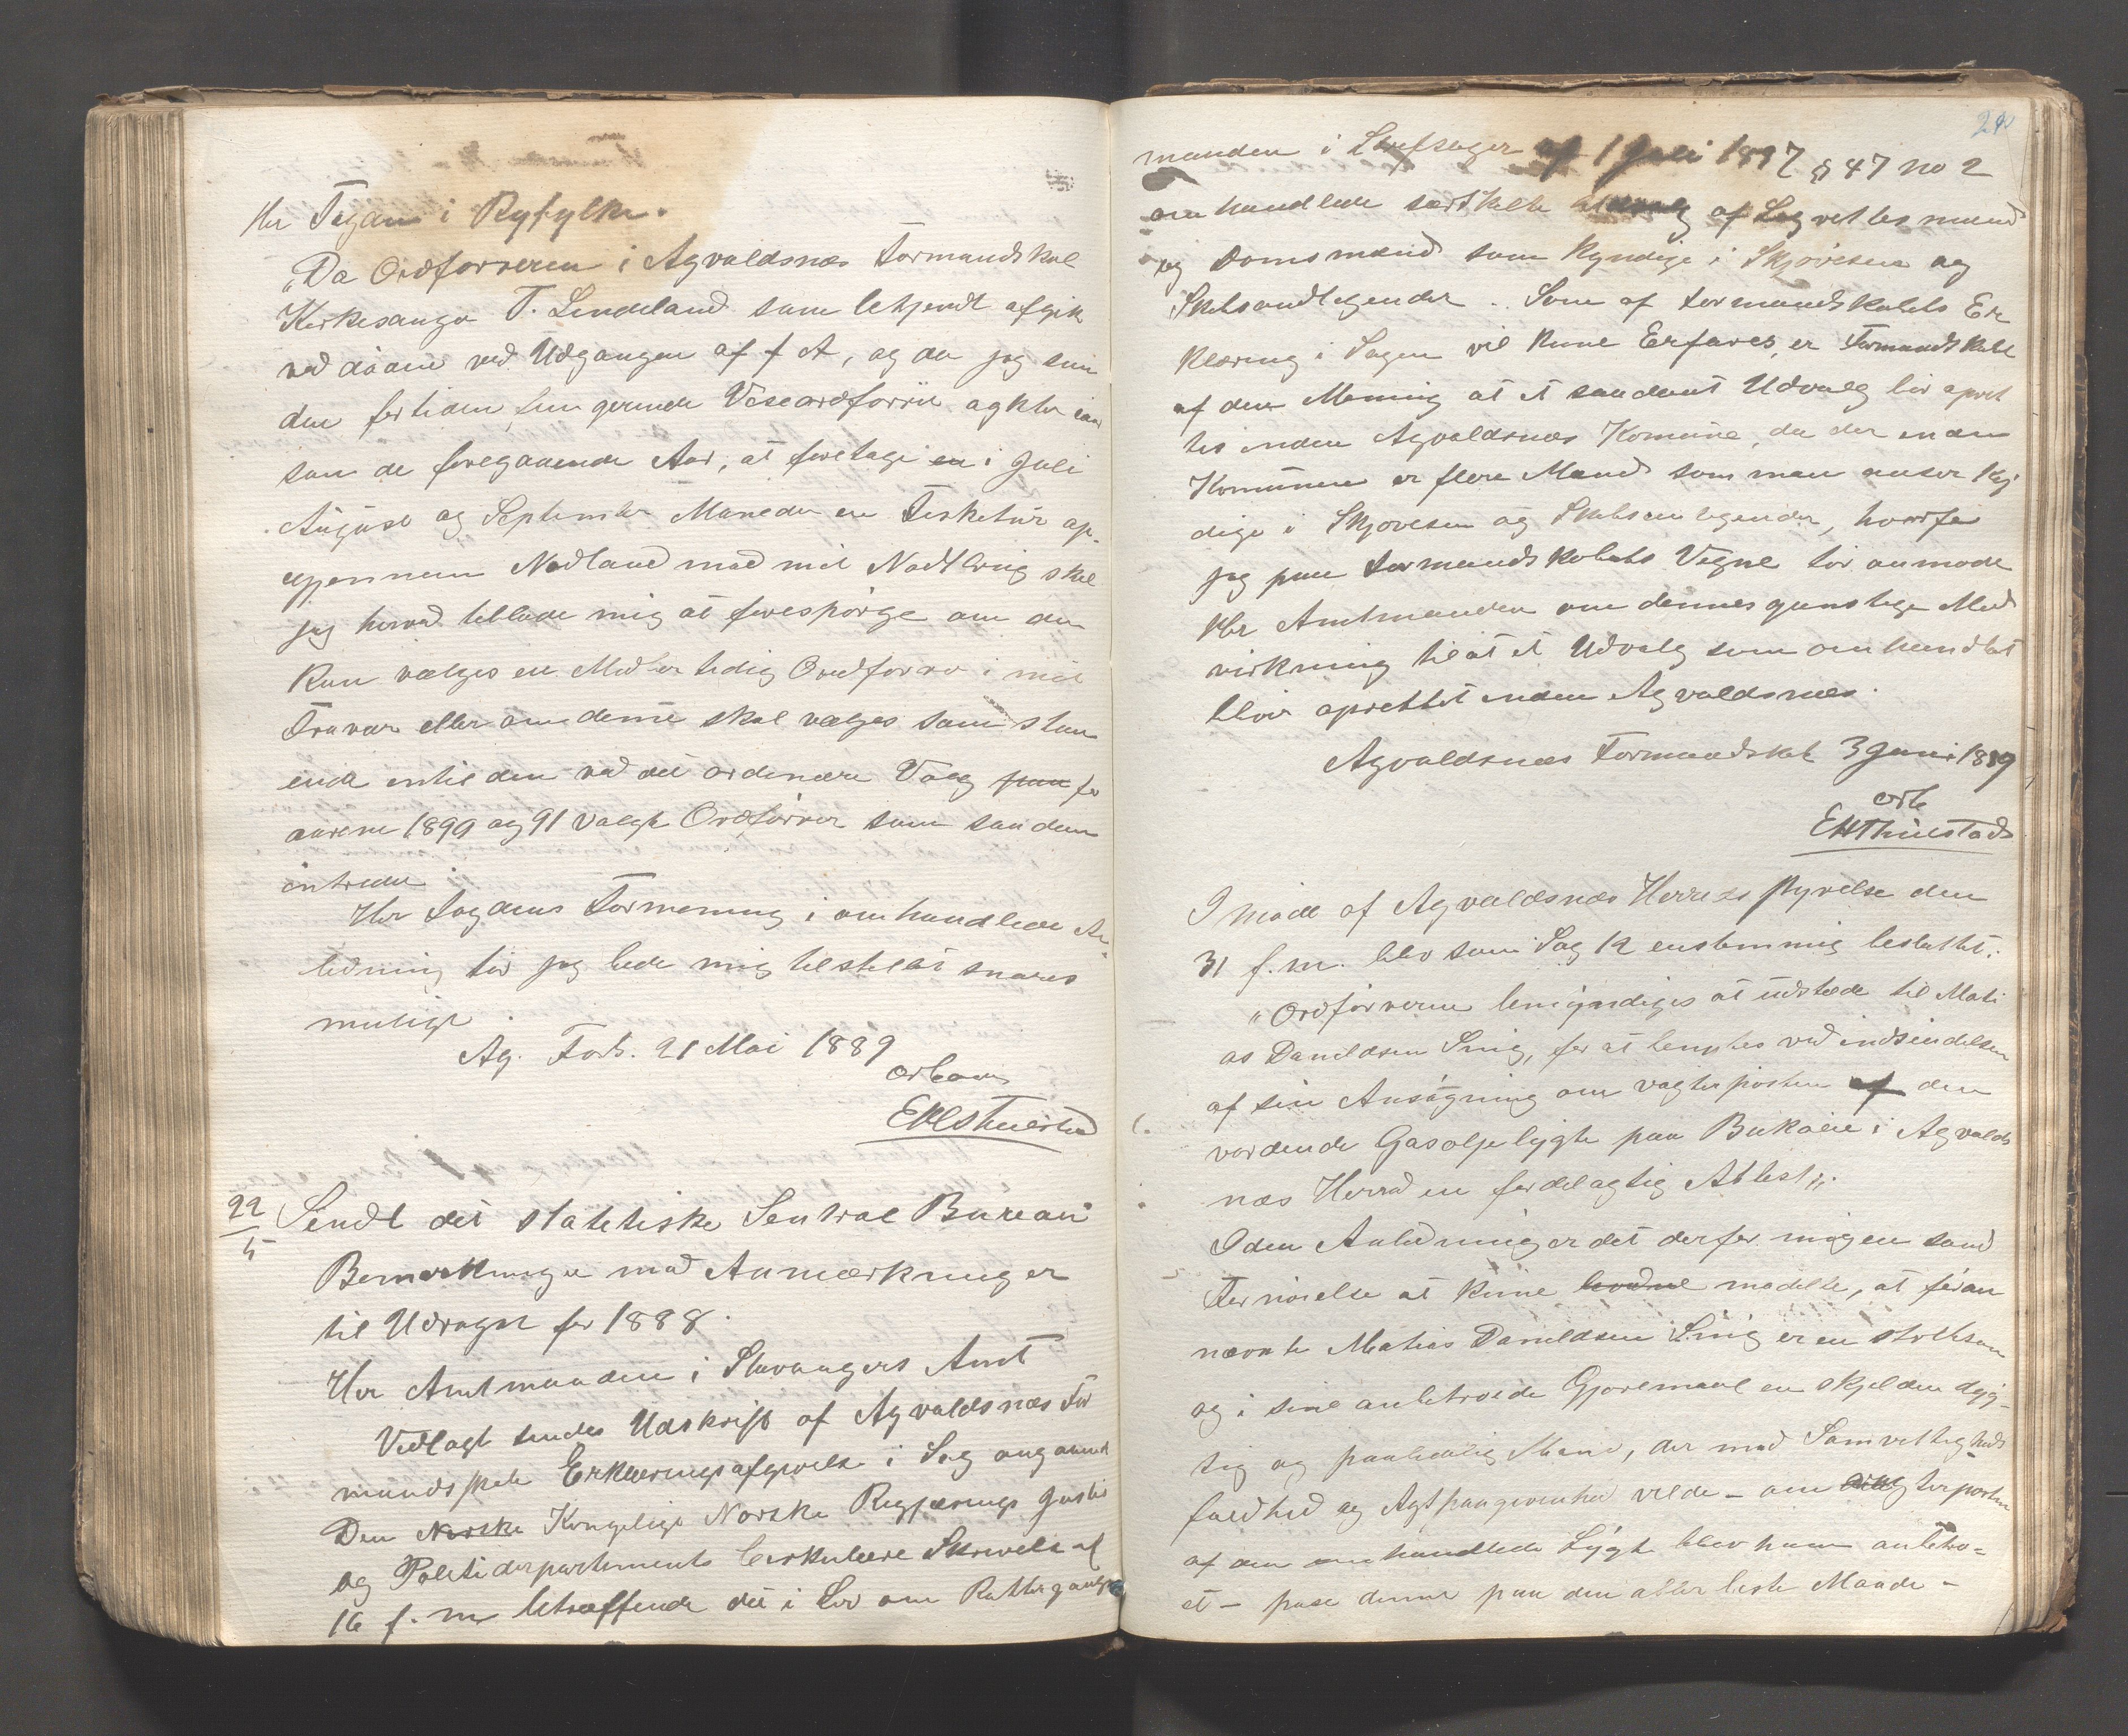 Hr Fogden i Ryfylke.
"Da Ordføreren i Agvaldsnæs Formandskab
Kirkesanger T. Lindeland som bekjendt afgik
ved døden ved Udgangen af f A, og da jeg som
den fortiden fungerende Viseordfører agter iaar
som de foregaaende Aar, at foretage en i Juli
August og September Maneder en Fisketur op-
egjennem Nordland med mit Notbrug skal
jeg herved tillade mig at forespørge om der
kan vælges en Midlertidig Ordfører i mit
Fravær eller om denne skal vælges som staa
ende intil den ved det ordinære Valg paa for
aarene 1890 og 91 valgte Ordfører som saadan
intræder
Hr Fogdens Formening i omhandlede An
ledning tør jeg bede mig tilstillet snarest
muligt
Ag. Forb. 21 Mai 1889
ærbom
EHThuestad
22/5 Sendt det statetiske Sentral Bureau
Bemærkninger med Anmærkninger
til Udragst for 1888.
Hr Amtmanden i Stavangers Amt
Vedlagt sendes Udskrift af Agvaldsnæs For
mandsskabs Erklæringsafgivelse i Sag angaaende
Den Norske Kongelige Norske Regjærings Justis
og Politidepartements Cirkulære Skrivelse af
16 f. m betræffende det i Lov om Rettergangs
manden i Strafsager af 1 Juli 1887 § 47 no 2
omhandlede særskilte Udvalg af Lagrettesmænd
og Domsmænd som Kyndige i Skjøvesen og
Skibsandlegender. Som af Formandskabets Er
klæring i Sagen vil kune Erfares, er Formandskabet
af den Mening at et saadant Udvalg bør opret
tes inden Agvaldsnæs Komune, da der inden
Komunen er flere Mænd som man anser Kyn
dige i Skjøvesen og Skibsanlegender, hvorfor
jeg paa Formandskabets Vegne tør anmode
Hr Amtmanden om dennes gunstige Med
virkning til at et Udvalg som omhandlet
bliver oprettet inden Agvaldsnæs.
Agvaldsnæs Formandskab 3 Juni 1889
ærb
EHThuestad
I møde af Agvaldsnæs Herredsstyrelse den
31 f.m. blev som Sag 12 enstemmig besluttet:
"Ordføreren bemyndiges at udstede til Mati
as Danieldsen Snig, for at benyttes ved indsendelsen
af sin Ansøgning om vagterposten af den
vordende Gasoljelygte paa Bukøie i Agvalds
næs Herred en fordelagtig Attest".
I den Anledning er det derfor mig en sand
Fornøielse at kune modelle, at foran
nævnte Matias Danieldsen Snig er en stilsom
og i sine anbetroede Gjøremaal en skjelden dyg-
tig og paalidelig Mand, der med Samvittigheds
fuldhed og Agtpaagivenhed vilde – om vagterposten
af den omhandlede Lygte blev ham anbetro-
et – passe denne paa den aller beste Maade –